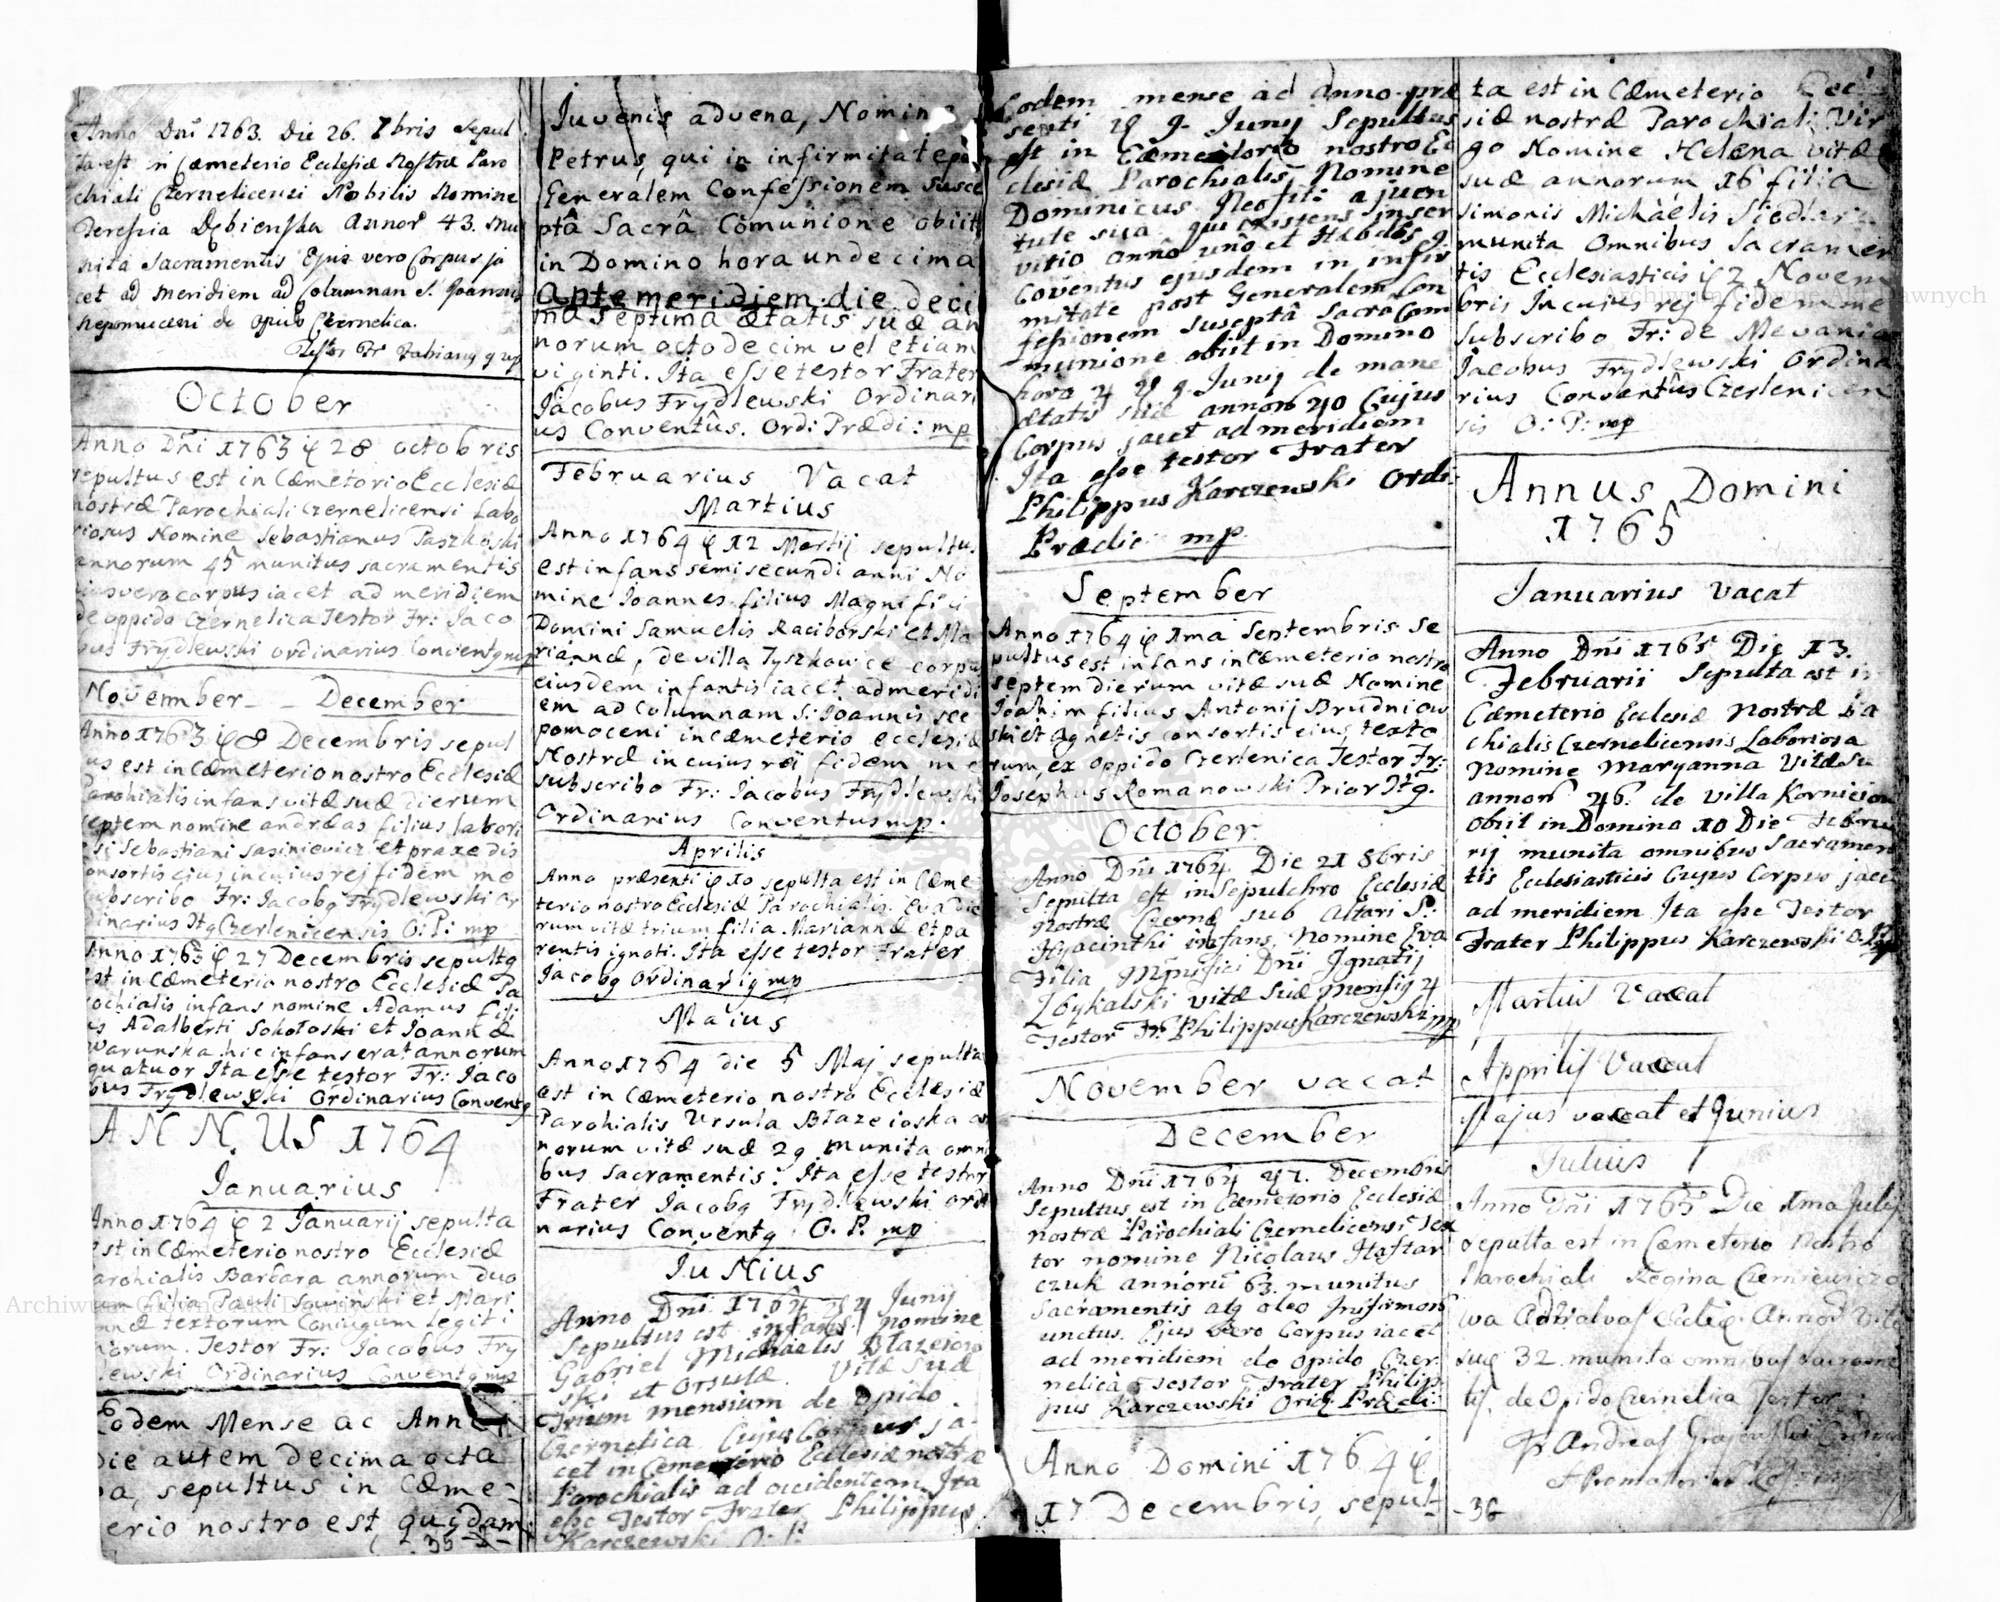 Anno Dni 1763. Die 26. 7bris sepul
ta est in Cæmeterio Ecclesiæ Nostræ Paro
chiali Czernelicensi Nobilis Nomine
Teressia Dębienska Annor 43. mu
nita Sacramentis Ejus vero Corpus ja
cet ad meridiem ad Columnam S. Joannis
Nepomuceni de Opido Czernelica.
Testor Fr Fabiang
October
Anno Dñi 1763 28 octobris
sepultus est in Cæmeterio Ecclesiæ
nostræ Parochiali Czernelicensi Labo
riosus Nomine Sebastianus Paszkoski
annorum 45 munitus sacramentis
eius vero corpus iacet ad meridiem
de oppido Czernelica Testor Fr: Jaco
bus Frydlewski ordinarius Conventg mp
November - - December
Anno 1763 8 Decembris sepul
us est in Cæmeterio nostro Ecclesiæ
Parohialis infans vitæ suæ dierum
septem nomine andræas filius labori
si Sebastiani Sasinievicz et praxedis
consortis eius in cuius rej fidem me
subscribo Fr: Jacobg Frydlewski or
dinarius Itg Czerlenicensis O: P: mp
Anno 1763 27 Decembris sepultg
est in Cæmeterio nostro Ecclesiæ Pa
rochialis infans nomine Adamus fili
us Adalberti Sokołoski et Joannæ
Warunska hic infans erat annorum
quatuor Ita esse testor Fr: Jaco
bus Frydlewski Ordinarius Conventg
ANNUS 1764
Januarius
Anno 1764 2 Januarij sepulta
est in Cæmeterio nostro Ecclesiæ
arohialis Barbara annorum duo
um filia Pauli Sawinski et Mari
nnæ textorum Coniugum legiti
morum. Testor Fr: Jacobus Fry
lewski Ordinarius Conventg mp
Eodem Mense ac Anno
Die autem decima octa
va, sepultus in Cæme-
terio nostro est, quidam
35
Juvenis advena, Nomine
Petrus, qui in infirmitate post
Generalem Confessionem susce
ptâ Sacrâ Comunione obiit
in Domino hora undecima
Antemeridiem die deci
ma septima ætatis suæ an
norum octodecim vel etiam
viginti. Ita esse testor Frater
Jacobus Frydlewski Ordinari
us Conventûs. Ord: Prædi: mp
Februarius Vacat
Martius
Anno 1764 12 Martij sepultus
est infans semi secundi anni No
mine Joannes filius Magnifici
Domini Samuelis Raciborski et Ma
riannæ, de villa Tyszkowice corpus
eiusdem infantis iacet ad meridi
em ad Columnam S: Joannis
pomoceni in cæmeterio ecclesiæ
Nostræ in cuius rei fidem me
subscribo Fr: Jacobus Frydlewski
Ordinarius Conventus mp.
Aprilis
Anno præsenti 10 sepulta est in Cæme
terio nostro Ecclesiæ Parochialis. Eva die
rum vitæ trium filia Mariannæ et pa
rentis ignoti. Ita esse testor Frater
Jacobg Ordinarig mp
Maius
Anno 1764 die 5 Maj sepulta
est in Cæmeterio nostro Ecclesiæ
Parohialis Ursula Blazeioska an
norum vitæ suæ 29 munita omni
bus Sacramentis. Ita esse testor
Frater Jacobg Frydlewski ordi
narius Conventg O. P. mp
Junius
Anno Dni 1764 24 Junij
Sepultus est infans nomine
Gabriel Michaelis Blazeiow
ski et Orsulæ. Vitæ suæ
Trium mensium de Opido
Czernelica Cujus Corpus ja-
cet in Cemeterio Ecclesiæ nostræ
Parochialis ad occidentem. Ita
esse Testor Frater Philippus
Karczewski O: P:
Eodem mense ad Anno præ
senti 29 Junij Sepultus
est in Cæmeterio nostro Ec
clesiæ Parochialis Nomine
Dominicus Neofiti a juven
tute sua qui existens in ser
vitio anno uno et Hebdos 9
Coventus ejusdem in infir
mitate post Generalem Con
fessionem susceptâ Sacra Com
munione obiit in Domino
hora 4 29 Junij de mane
ætatis suæ annor 40 Cujus
Corpus jacet ad meridiem
Ita esse testor Frater
Philippus Karczewski Ordi:
Prædic mp
September
Anno 1764 1ma Septembris se
pultus est infans in Cæmeterio nostro
septem dierum vitæ suæ Nomine
Joahim filius Antonij Brudniow
ski et Agnetis consortis eius texto
rum, ex oppido Czerlenica Testor Fr:
Josephus Romanowski Prior Itg.
October
Anno Dñi 1764 Die 21 8bris
Sepulta est in Sepulchro Ecclesiæ
nostræ Czerne sub Altari S:
Hyacinthi infans, Nomine Eva
Filia Mgnifici Dñi Ignatij
Zbykalski vitæ suæ mensig 4
Testor Fr. Philippus Karczewski mp
November vacat
December
Anno Dñi 1764 Decembris
Sepultus est in Cæmeterio Ecclesiæ
nostræ Parochiali Czernelicensi Tex
tor nomine Nicolaus Haftar
czuk annorū 63. munitus
Sacramentis atq oleo Infirmorū
unctus. Ejus vero Corpus iacet
ad meridiem de Opido Czer
nelica Testor Frater Philip
pus Karczewski Ordi: Prædi:
Anno Domini 1764
17 Decembris, sepul-
-36
ta est in Cæmeterio Eccl
siæ nostræ Parochiali Vir
go Nomine Helena vitæ
suæ annorum 16 filia
Simonis Michaelis Siedlarz
munita Omnibus Sacramen
tis Ecclesiasticis 2 Novem
bris In cuius rej fidem me
Subscribo Fr: de Mevania
Jacobus Frydlewski Ordina
rius Conventûs Czerlenicen
sis O: P: mp
Annus Domini
1765
Januarius vacat
Anno Dñi 1765 Die 13.
Februarii Sepulta est in
Cæmeterio Ecclesiæ Nostræ Pa
chialis Czernelicensis Laboriosa
Nomine Maryanna Vitæ su
annorū 46. de Villa Korniciow
Obiit in Domino 10 Die Februa
rij munita omnibus Sacramen
tis Ecclesiasticis Cujus Corpus jacet
ad meridiem Ita esse Testor
Frater Philippus Karczewski O. P.
Martius Vacat
Apprilis Vacat
Majus vacat et Junius
Julius
Anno Dñi 1765 Die 1ma Julij
Sepulta est in Cæmeterio Nostro
Parochiali Regina Czerniewiczo
wa Annor Vitæ
suæ 32 munita omnibus Sacramen
tis, de Opido Czernelica Testor
Fr Andreas